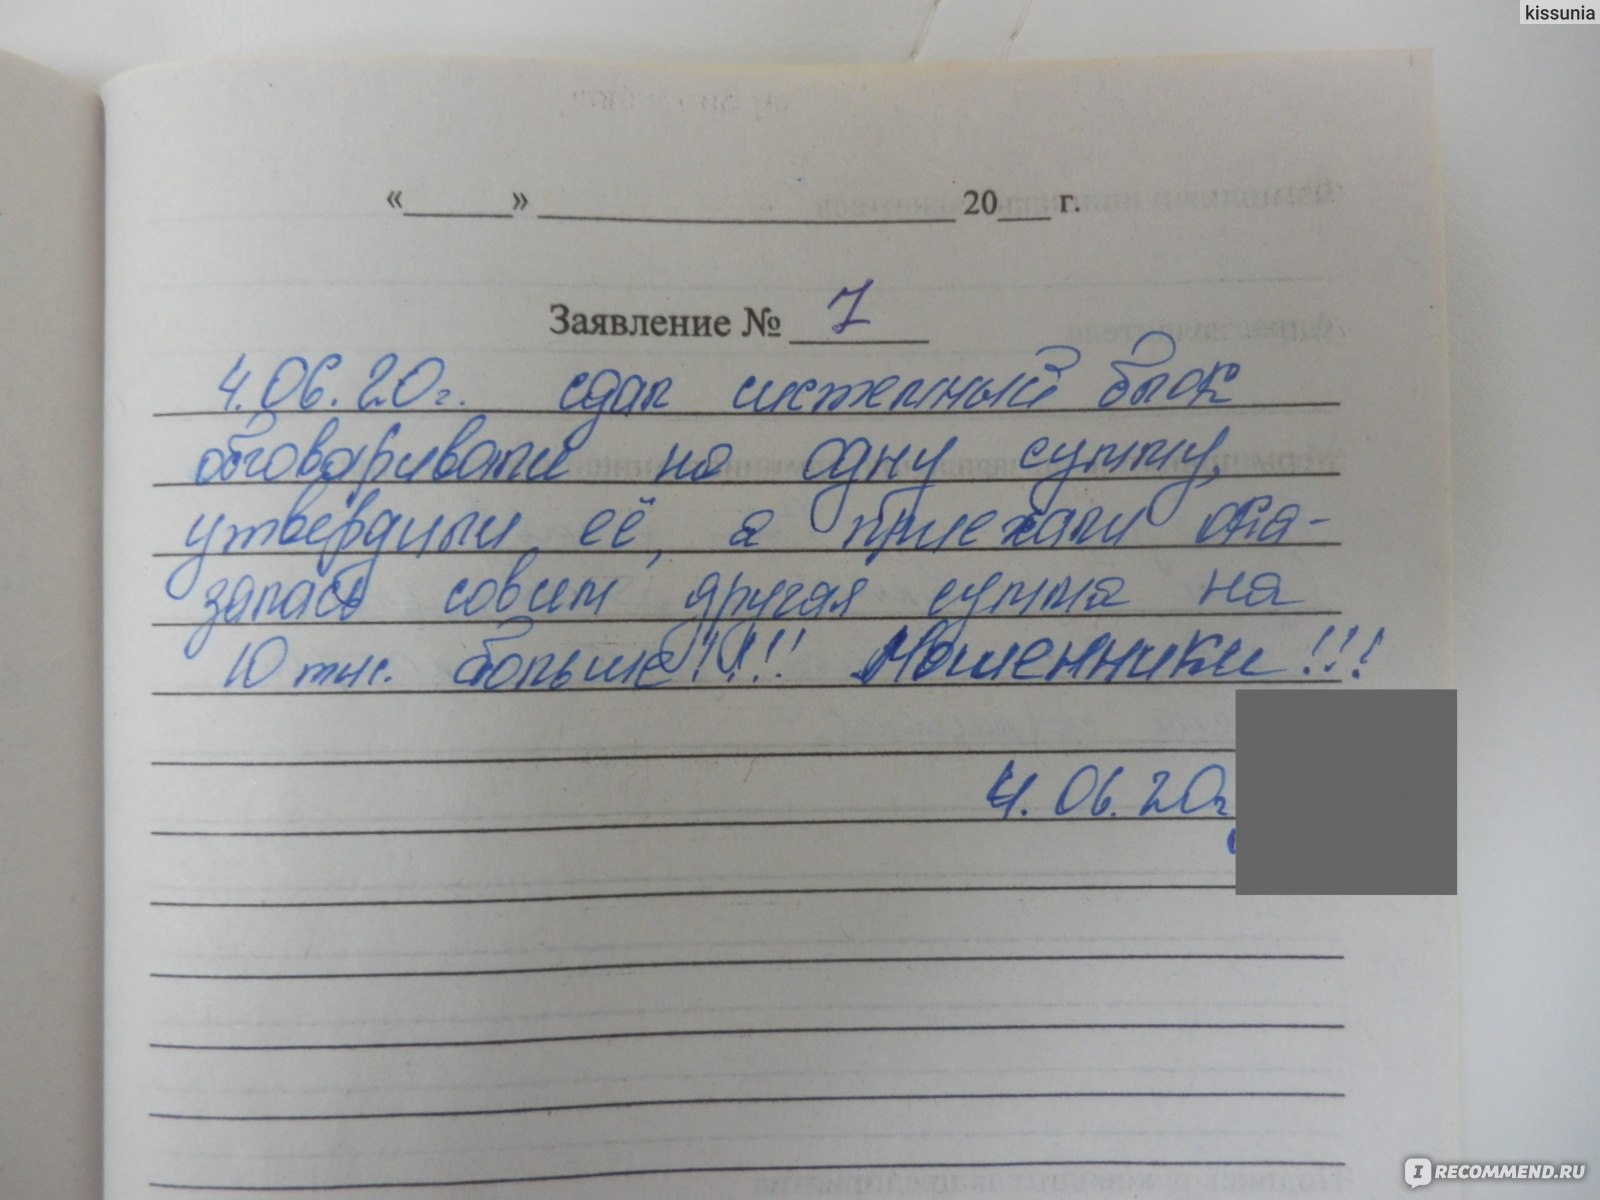 kissunia
«______» ______________________ 20___ г.
Заявление № 7
4.06.20г. сдал системный блок
обговаривали на одну сумму,
утвердили её, а приехали ока-
залась совсем другая сумма на
10 тыс. больше!!!!! Мошенники!!!
4.06.20г
IRECOMMEND.RU